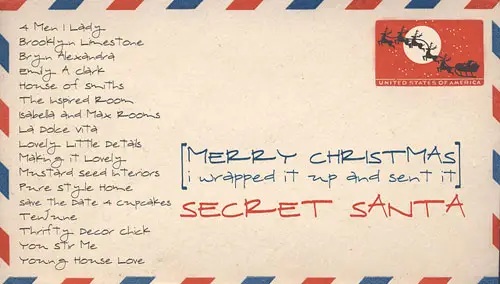 4 Men 1 Lady
Brooklyn Limestone
Bryn Alexandra
Emily A Clark
House of Smiths
The Inspred Room
Isabella and Max Rooms
La Dolce Vita
Lovely Little Details
Making it Lovely
Mustard seed interiors
Pure Style Home
Save the Date 4 Cupcakes
TenJune
Thrifty Decor Chick
You Str Me
Young House Love
UNITED STATES OF AMERICA
[MERRY CHRISTMAS]
[i wrapped it up and sent it]
SECRET SANTA